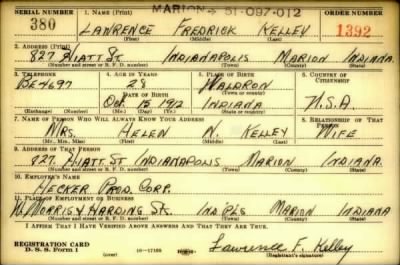 MARION 51-097-012
SERIAL NUMBER 1. NAME (Print) ORDER NUMBER
380 LAWRENCE FREDRICK KELLEY 1392
(First) (Middle) (Last)
2. ADDRESS (Print)
827 HIATT St. INDIANAPOLIS MARION INDIANA
(Number and street or R. F. D. number) (Town) (County) (State)
3. TELEPHONE 4. AGE IN YEARS 5. PLACE OF BIRTH 6. COUNTRY OF CITIZENSHIP
BE4697 28 WALDRON
DATE OF BIRTH (Town or county)
Oct. 15 1912 INDIANA U.S.A.
(Exchange) (Number) (Mo.) (Day) (Yr.) (State or country)
7. NAME OF PERSON WHO WILL ALWAYS KNOW YOUR ADDRESS 8. RELATIONSHIP OF THAT PERSON
MRS. HELEN N. KELLEY WIFE
(Mr., Mrs., Miss) (First) (Middle) (Last)
9. ADDRESS OF THAT PERSON
827 HIATT St INDIANAPOLIS MARION INDIANA
(Number and street or R. F. D. number) (Town) (County) (State)
10. EMPLOYER'S NAME
HECKER PROD. CORP.
11. PLACE OF EMPLOYMENT OR BUSINESS
W. MORRIS & HARDING Sts. IND'PLS MARION INDIANA
(Number and street or R. F. D. number) (Town) (County) (State)
I AFFIRM THAT I HAVE VERIFIED ABOVE ANSWERS AND THAT THEY ARE TRUE.
REGISTRATION CARD
D. S. S. Form 1 (over) 16-17105 Lawrence F. Kelley
(Registrant's signature)